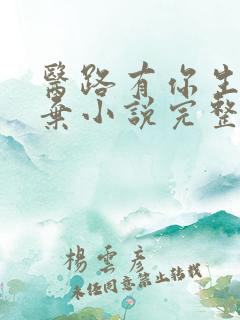 醫路有你生
棄小說完整
楊雲彥
未經同意禁止转载